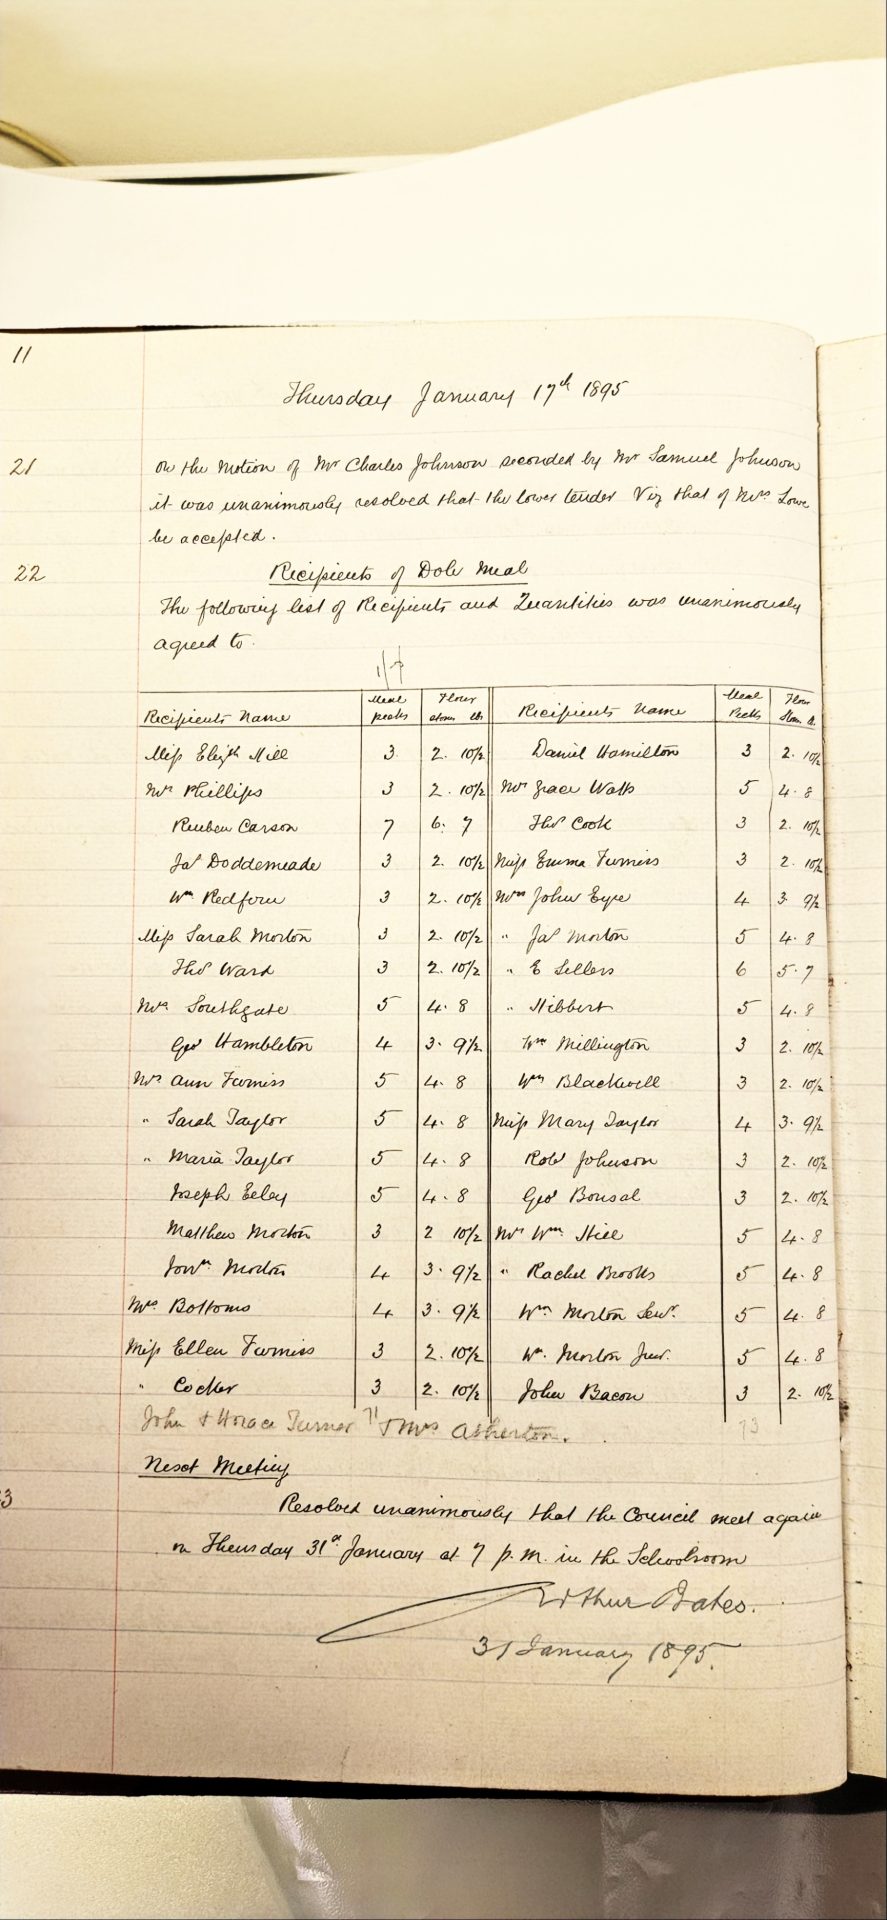 11
Thursday January 17th 1895
21 on the motion of Mr Charles Johnson seconded by Mr Samuel Johnson
it was unanimously resolved that the lower tender Viz that of Mrs Lowe
be accepted.
22 Recipients of Dole Meal
The following list of Recipients and Quantities was unanimously
agreed to.
Recipients Name Meal pecks Flour stone lb Recipients Name Meal Pecks Flour Stone lb
Miss Elizth Hill 3 2. 10½ Daniel Hamilton 3 2. 10½
Mrs Phillips 3 2. 10½ Mrs Grace Watts 5 4. 8
Reuben Carson 7 6. 7 Thos Cook 3 2. 10½
Jas Doddemeade 3 2. 10½ Miss Emma Furniss 3 2. 10½
Wm Redfern 3 2. 10½ Mrs John Eyre 4 3. 9½
Miss Sarah Morton 3 2. 10½ " Jas Morton 5 4. 8
Thos Ward 3 2. 10½ " E Sellers 6 5. 7
Mrs Southgate 5 4. 8 " Hibbert 5 4. 8
Geo Hambleton 4 3. 9½ Wm Millington 3 2. 10½
Mrs Ann Furniss 5 4. 8 Wm Blackwell 3 2. 10½
" Sarah Taylor 5 4. 8 Miss Mary Taylor 4 3. 9½
" Maria Taylor 5 4. 8 Robt Johnson 3 2. 10½
Joseph Eeley 5 4. 8 Geo Bonsal 3 2. 10½
Matthew Morton 3 2 10½ Mrs Wm Hill 5 4. 8
Jonn Morton 4 3. 9½ " Rachel Brooks 5 4. 8
Mrs Bottoms 4 3. 9½ Wm Morton Senr. 5 4. 8
Miss Ellen Furniss 3 2. 10½ Wm. Morton Junr. 5 4. 8
" Cocker 3 2. 10½ John Bacon 3 2. 10½
John & Horace Turner 71 & Mrs Atherton. 73
Next Meeting
3 Resolved unanimously that the Council meet again
on Thursday 31st January at 7 p.m. in the Schoolroom
Arthur Bates.
31 January 1895.